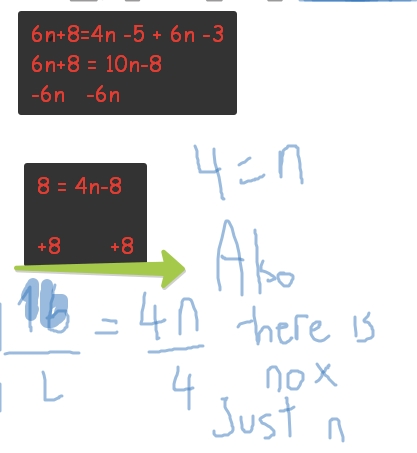 6n+8=4n -5 + 6n -3
6n+8 = 10n-8
-6n -6n
8 = 4n-8
+8 +8
16 = 4n
4
4=n
Also
there is
no x
Just n